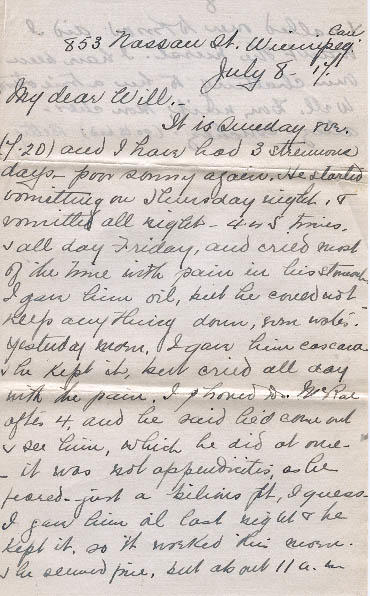 853 Nassau St. Winnipeg, Can.
July 8 - 17.
My dear Will, -
It is Sunday eve.
(7.20) and I have had 3 strenuous
days - poor sonny again. He started
vomitting on Thursday night, &
vomitted all night - 4 or 5 times,
& all day Friday, and cried most
of the time with pain in his stomach
I gave him oil, but he could not
keep anything down, even water.
Yesterday morn, I gave him cascara
& he kept it, but cried all day
with the pain. I phoned Dr. McRae
after 4, and he said he'd come out
& see him, which he did at once -
- it was not appendicitis, as he
feared - just a bilious fit, I guess -
I gave him oil last night & he
kept it, so it worked this morn.
& he seemed fine, but about 11 a.m